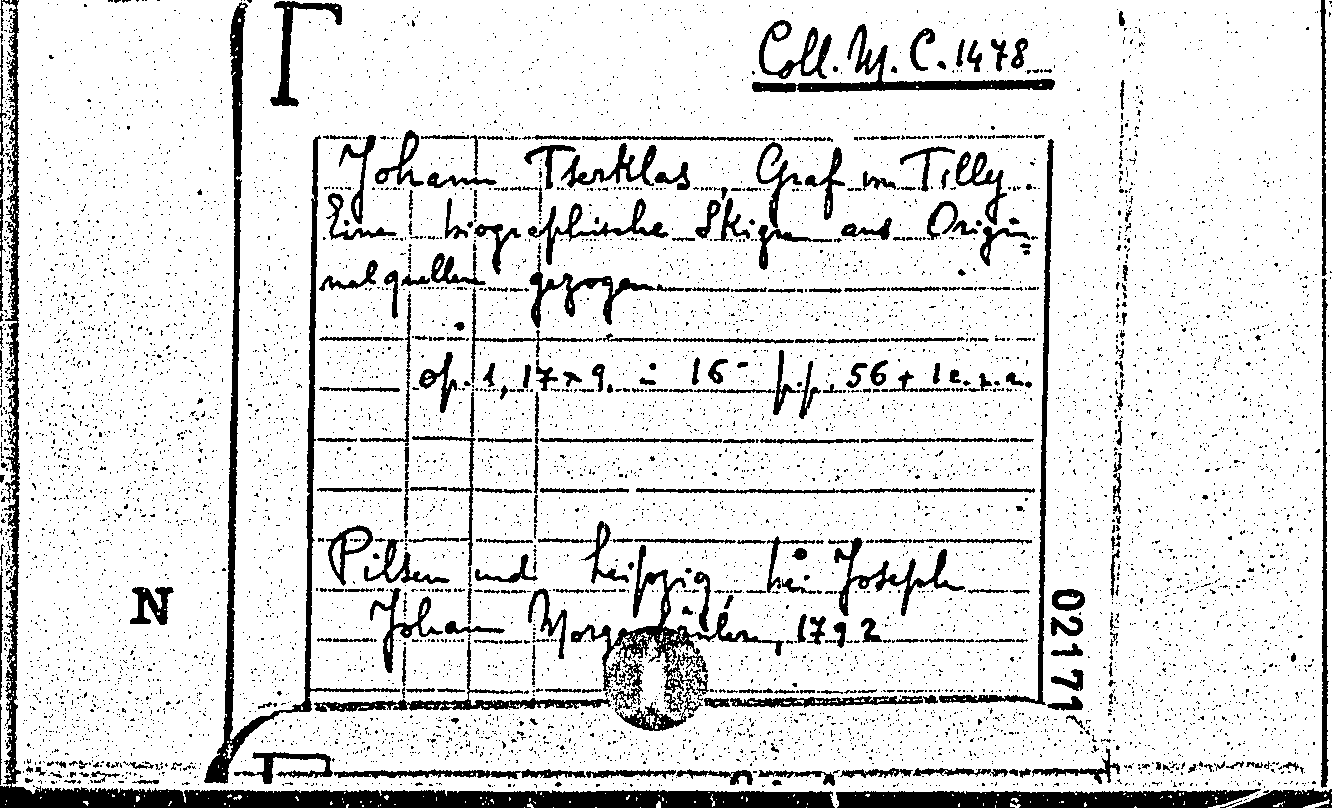 T
Coll. M. C. 1478
Johann Tserklas, Graf von Tilly.
Eine biographische Skizze aus Origi=
nalquellen gezogen.
op. 1, 17x9, in 16- pp. 56 +
Pilsen und Leipzig, bei Joseph
Johann 1792
N
02171
T